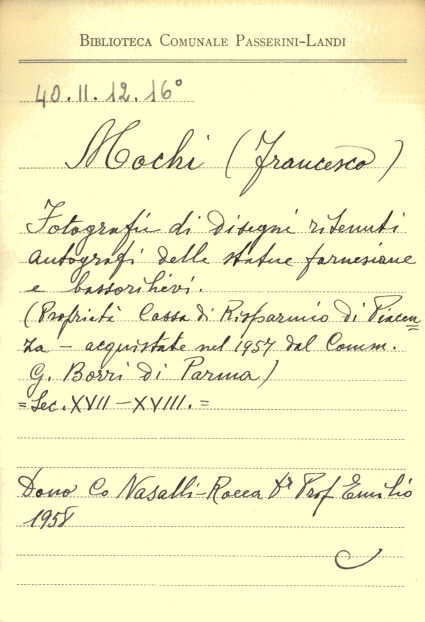 BIBLIOTECA COMUNALE PASSERINI-LANDI
40.II.12.16°
Mochi (Francesco)
Fotografie di disegni ritenuti
autografi delle statue farnesiane
e bassorilievi.
(Proprietà Cassa di Risparmio di Piacen=
za – acquistate nel 1957 dal Comm.
G. Borri di Parma)
= Sec. XVII – XVIII. =
Dono Co Nasalli-Rocca Dr Prof Emilio
1958